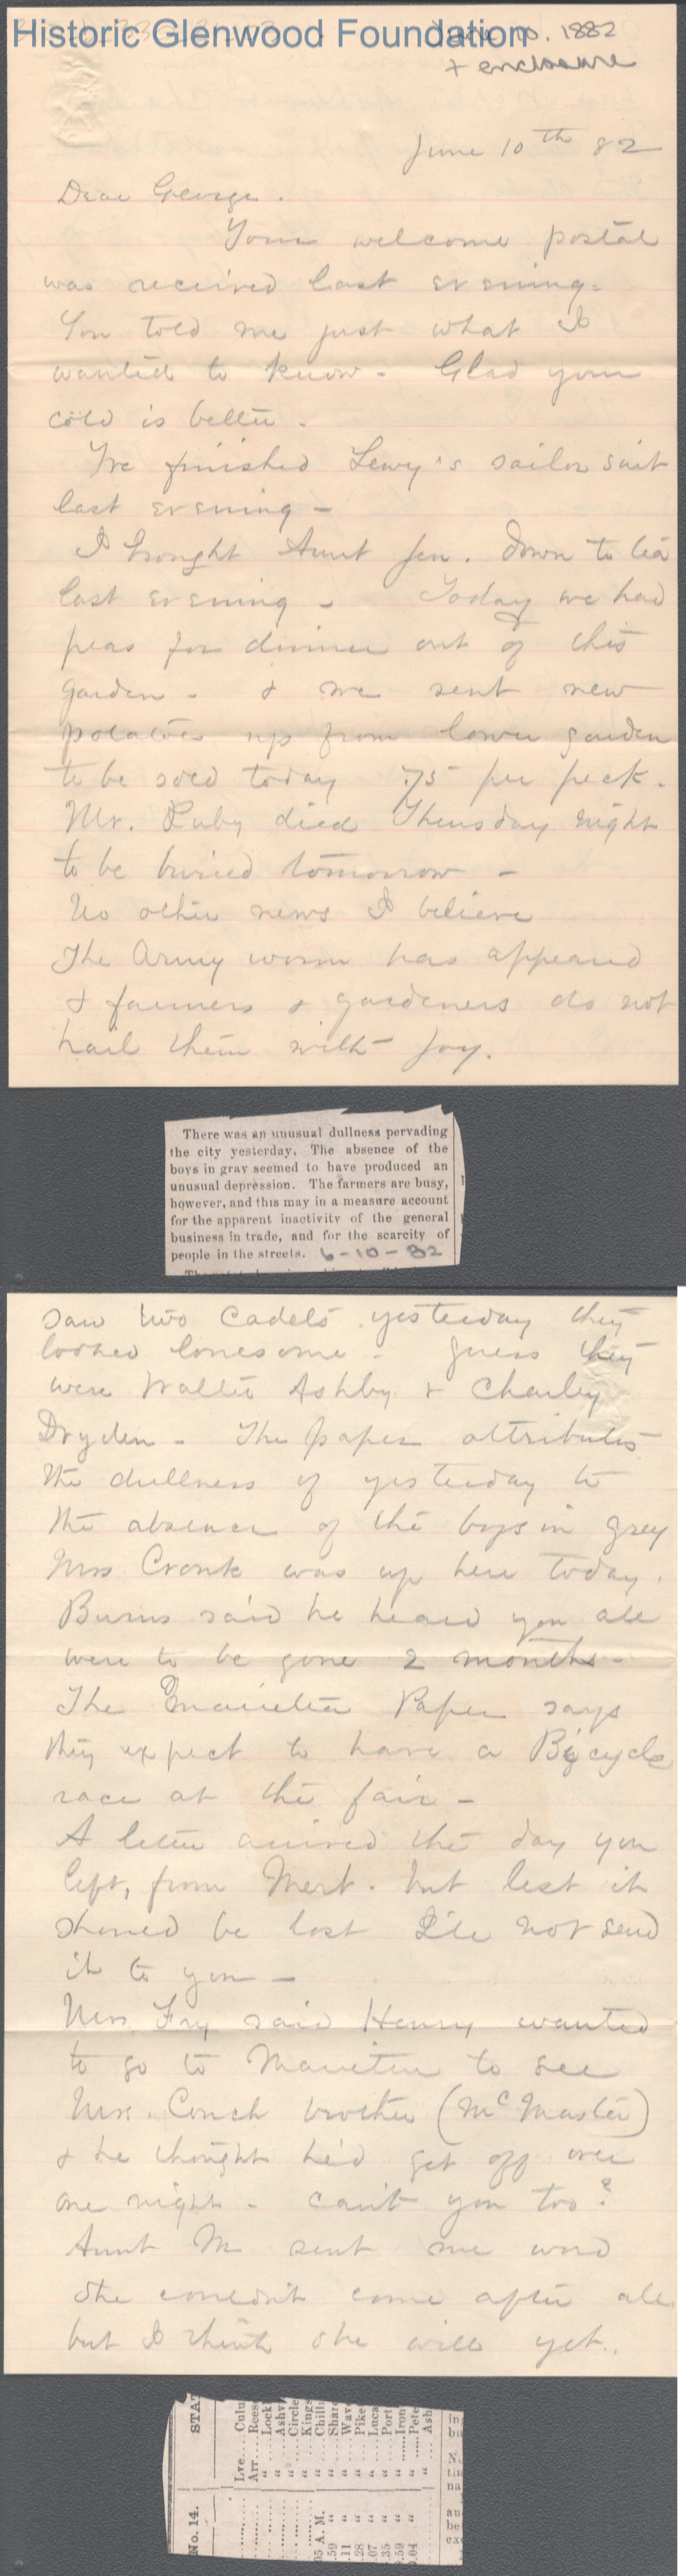 Historic Glenwood Foundation
June 10. 1882
+ enclosure
June 10th 82
Dear George.
Your welcome postal
was received last evening-
You told me just what I
wanted to know - Glad your
cold is better.
I've finished Lewy's sailor suit
last evening -
I brought Aunt Jen. down to tea
last evening - Today we had
peas for dinner out of this
garden - & we sent new
potatoes up from lower garden
to be sold today .75 per peck.
Mr. Ruby died Thursday night
to be buried tomorrow -
No other news I believe
The Army worm has appeared
& farmers & gardeners do not
hail them with joy.
There was an unusual dullness pervading
the city yesterday. The absence of the
boys in gray seemed to have produced an
unusual depression. The farmers are busy,
however, and this may in a measure account
for the apparent inactivity of the general
business in trade, and for the scarcity of
people in the streets. 6-10-82
saw two Cadets yesterday they
looked lonesome - guess they
were Walter Ashby & Charley
Dryden - The paper attributes
the dullness of yesterday to
the absence of the boys in grey
Mrs Cronk was up here today.
Burns said he heard you all
were to be gone 2 months -
The Marietta Paper says
they expect to have a Bicycle
race at the fair -
A letter arrived the day you
left, from Mert. but lest it
should be lost I'll not send
it to you -
Mrs. Fry said Henry wanted
to go to Marietta to see
Mrs. Couch brother (McMaster)
& he thought he'd get off over
one night - can't you too?
Aunt M sent me word
she couldn't come after all
but I think she will yet.
No. 14. STAT
Lve... Culu
Arr... Rees
" ... Lock
" ... Ashv
" ... Circle
" ... Kings
05 A. M. " ... Chill
.59 " " ... Shar
.11 " " ... Wav
.28 " " ... Pike
.07 " " ... Luca
.35 " " ... Port
.59 " " ... Iron
.04 " " ... Pete
" ... Ash